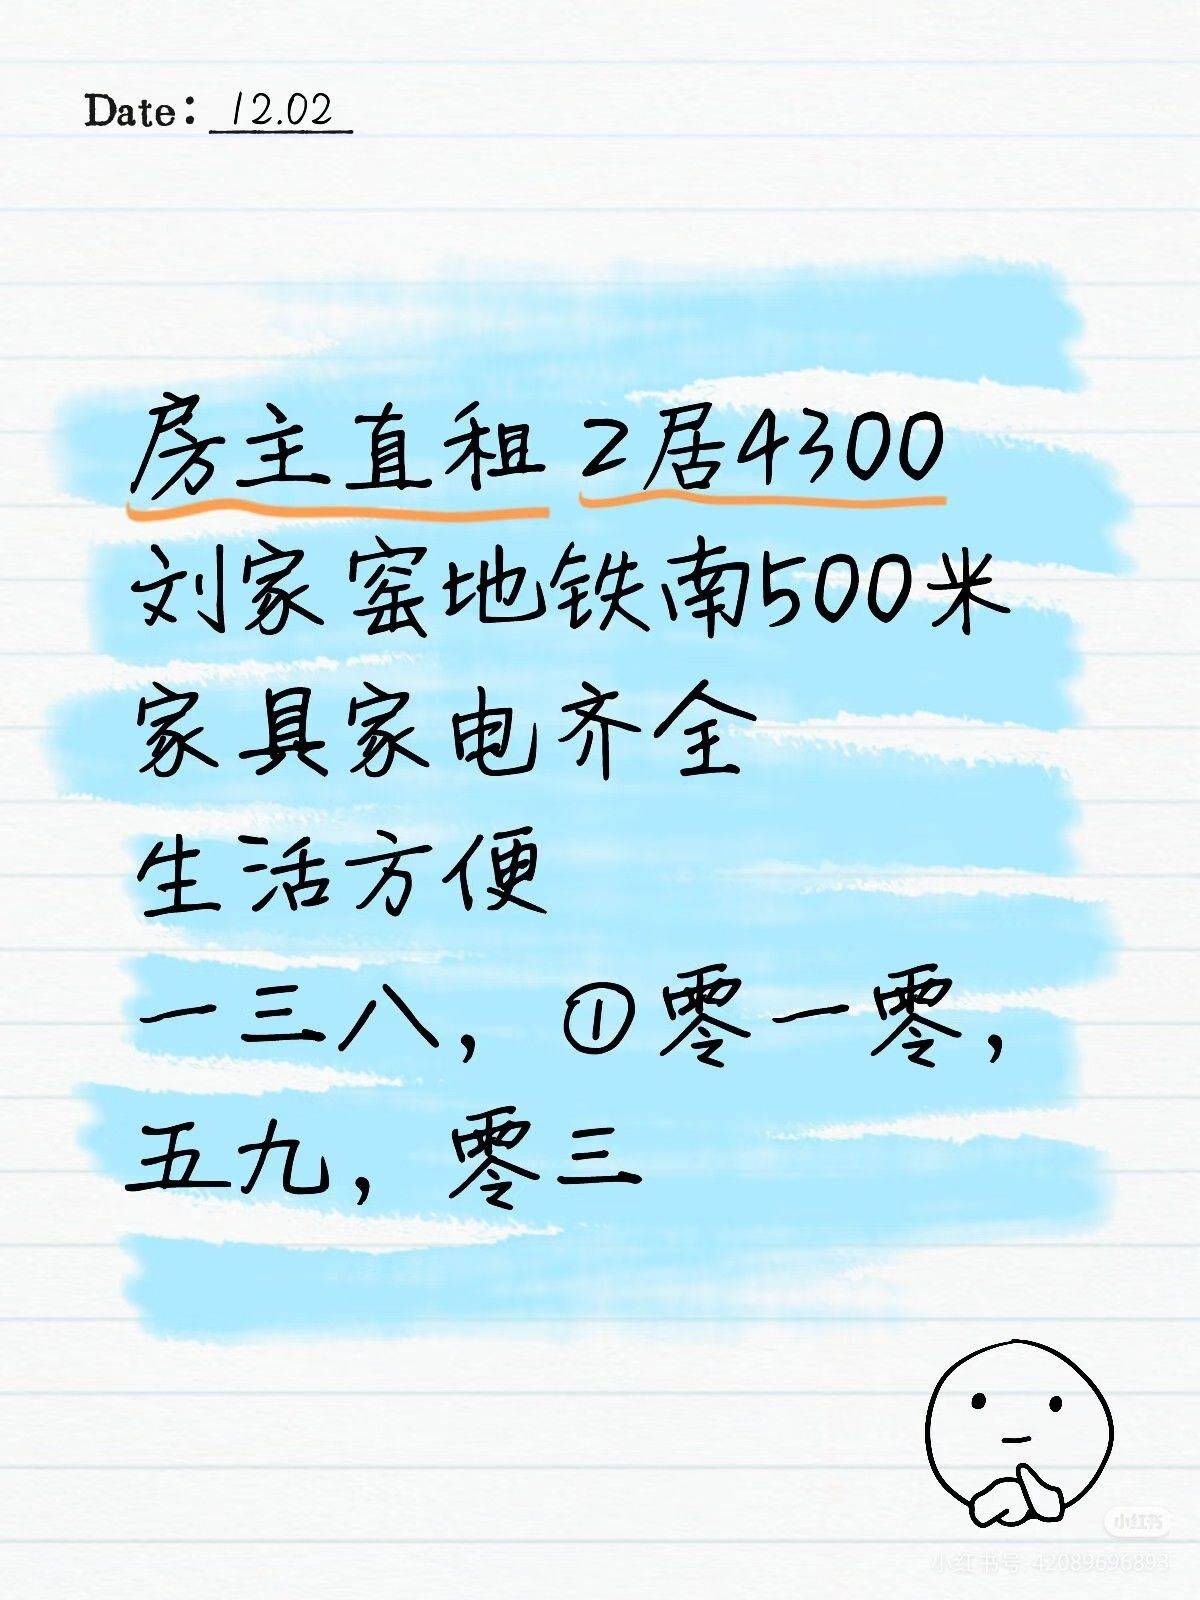 Date: 12.02
房主直租 2居4300
刘家窑地铁南500米
家具家电齐全
生活方便
一三八，①零一零，
五九，零三
小红书
小红书号:42089696893